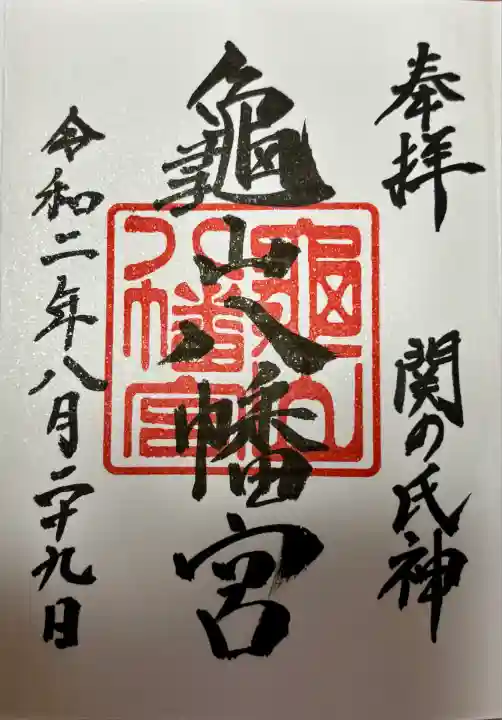 奉拝 関の氏神
龜山八幡宮
龜山八幡宮
令和二年八月二十九日